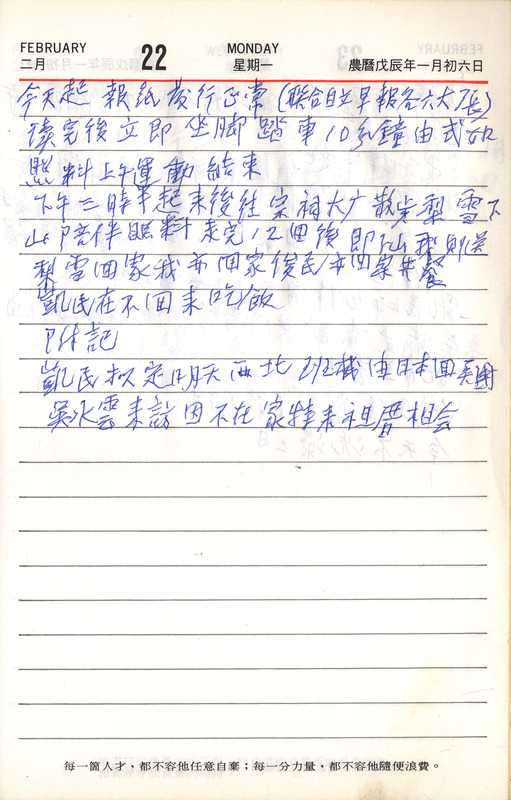 FEBRUARY 22 MONDAY
二月 星期一 農曆戊辰年一月初六日
今天起 報紙發行正常 (聯合自立早報各六大張)
讀完後立即坐脚踏車10分鐘由武
照料上午運動結束
下午三時半起來後往宗祠大广散步梨雪下
山陪伴照料 走完12回後即
梨雪回家我亦回家俊民亦回家共餐
凱民在不回来吃飯
附記
凱民拟定明天西北班機由日本回美國
吳冰雲来訪因不在家特来祖厝相会
每一箇人才，都不容他任意自棄；每一分力量，都不容他隨便浪費。